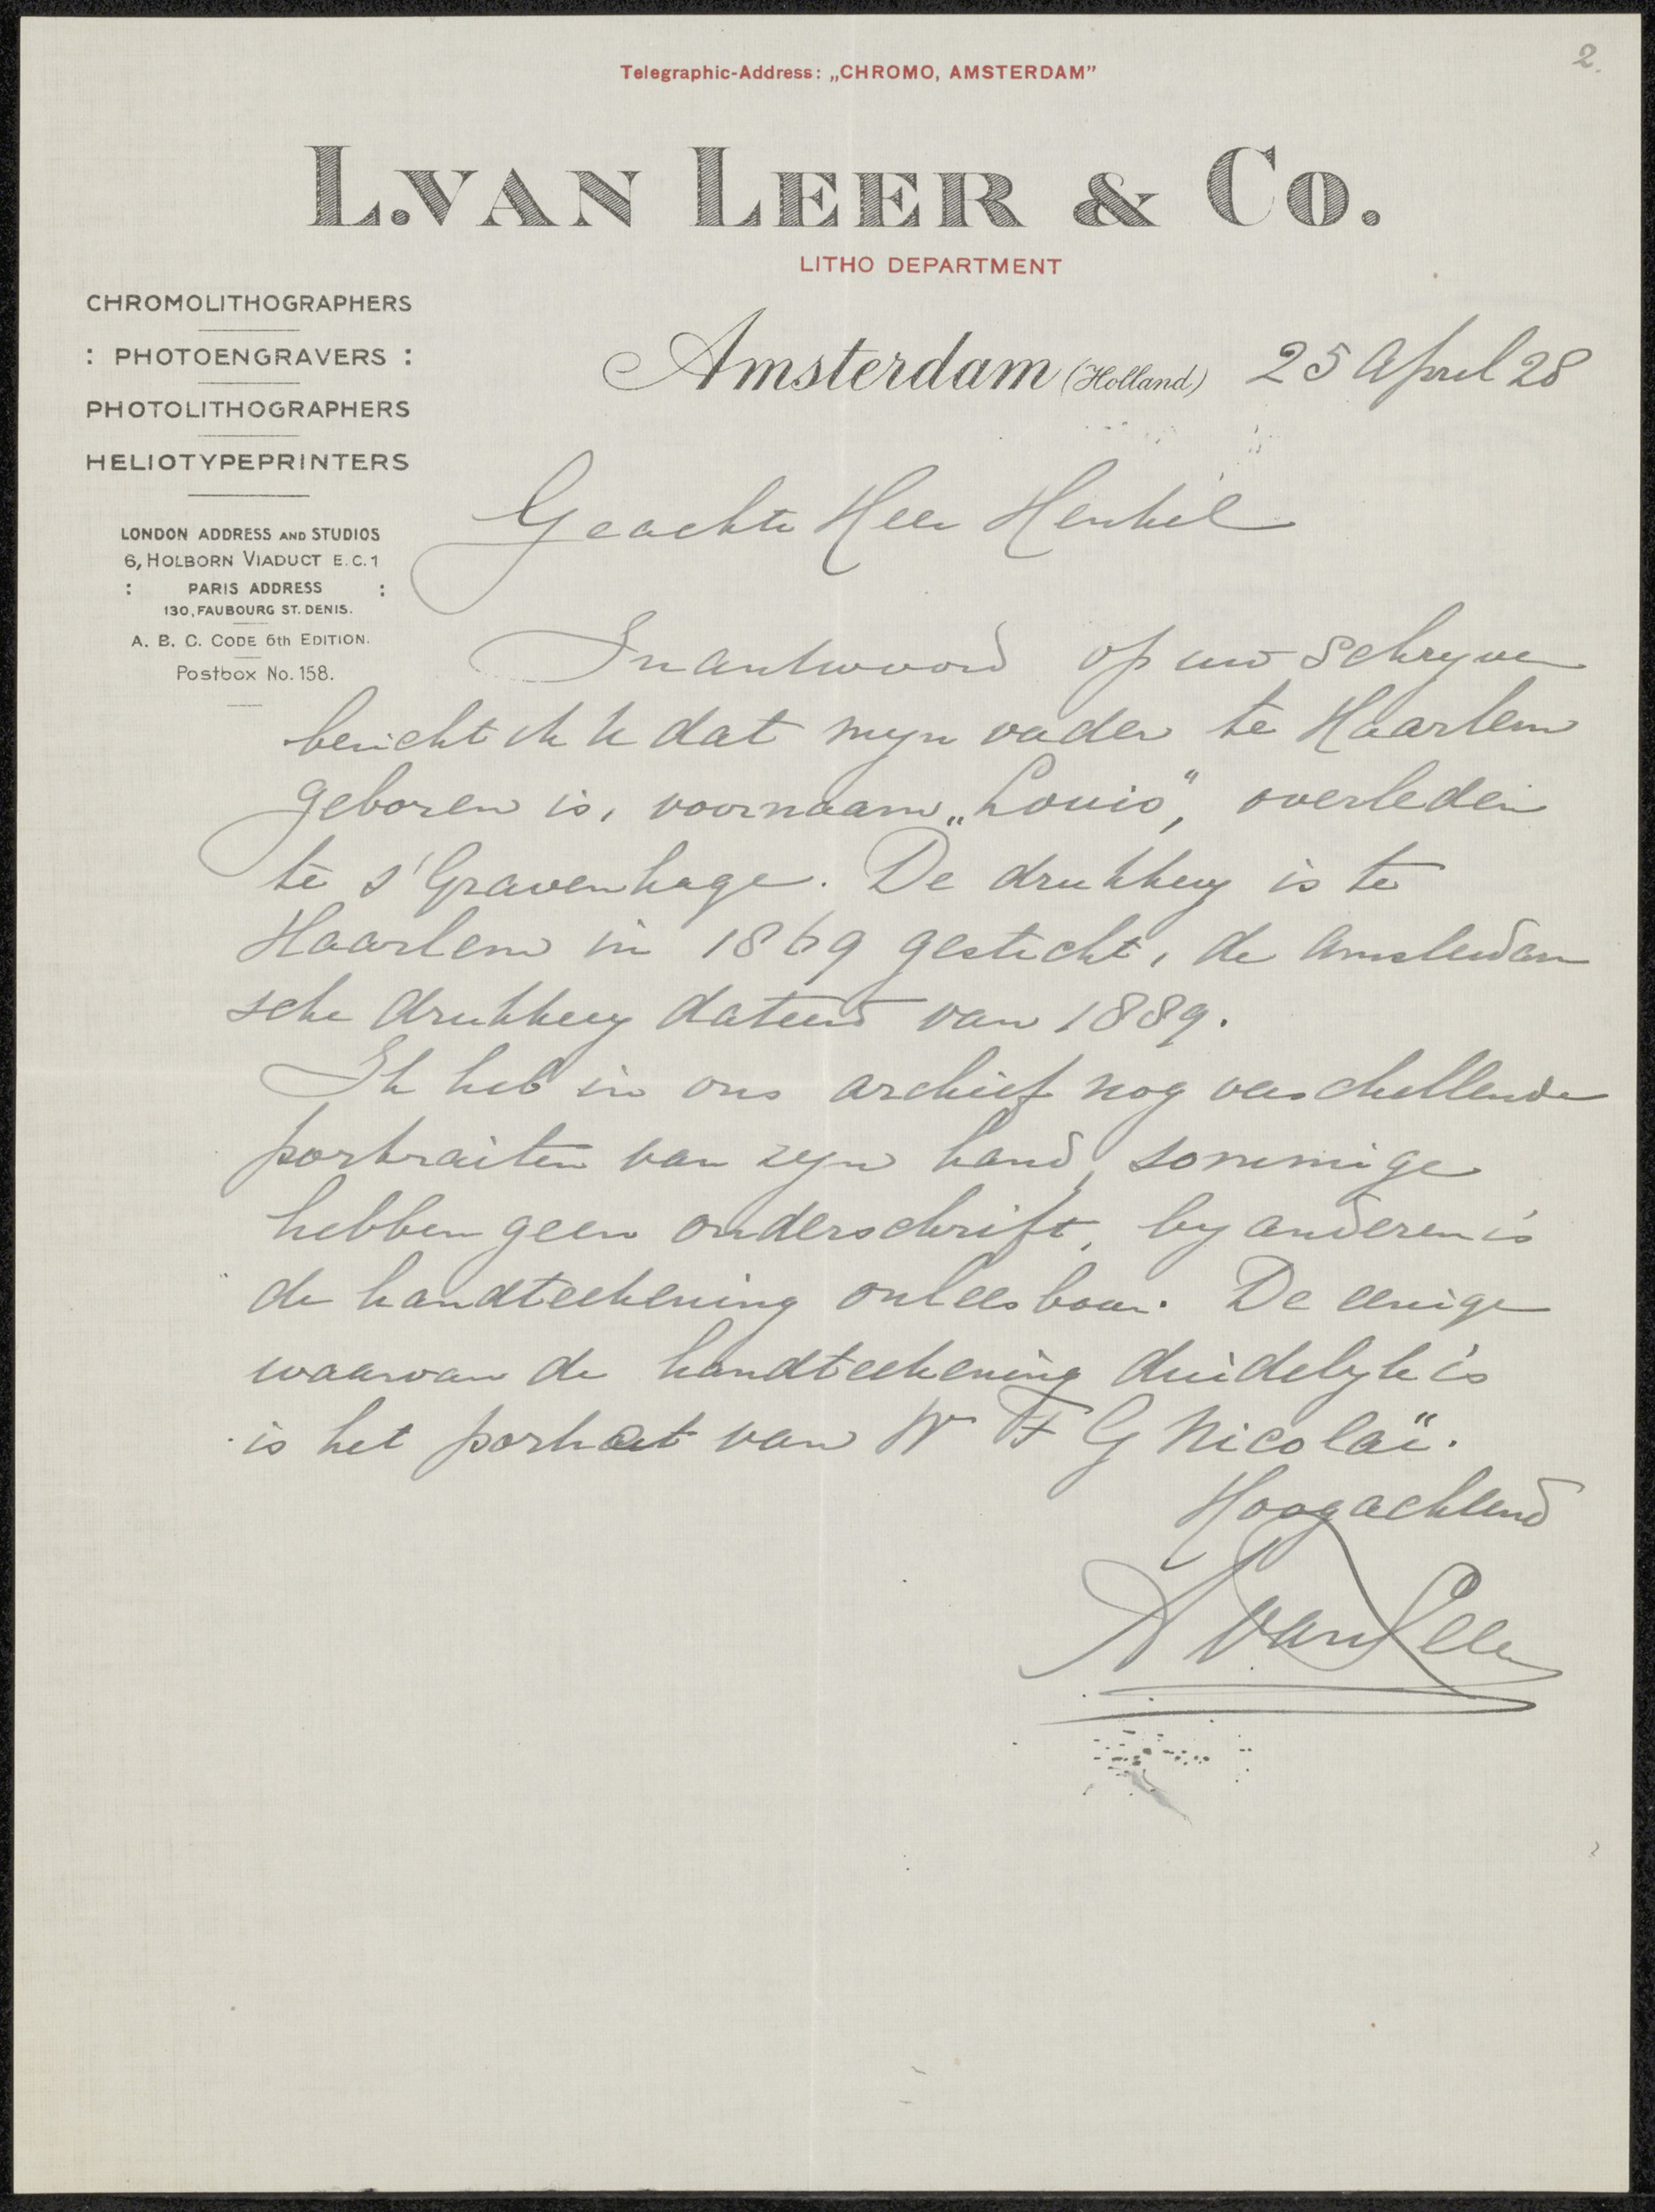 2.
Telegraphic-Address: „CHROMO, AMSTERDAM”
L. VAN LEER & Co.
LITHO DEPARTMENT
CHROMOLITHOGRAPHERS
: PHOTOENGRAVERS :
PHOTOLITHOGRAPHERS
HELIOTYPEPRINTERS
LONDON ADDRESS AND STUDIOS
6, HOLBORN VIADUCT E.C.1
: PARIS ADDRESS :
130, FAUBOURG ST. DENIS.
A. B. C. CODE 6th EDITION.
Postbox No. 158.
Amsterdam (Holland) 25 April 28
Geachte Heer Henkel
In antwoord op uw schryven
bericht ik U dat myn vader te Haarlem
geboren is, voornaam „Louis”, overleden
te s'Gravenhage. De drukkery is te
Haarlem in 1869 gesticht, de Amsterdam
sche drukkery dateerd van 1889.
Ik heb in ons archief nog verschellende
portraiten van zyn hand, sommige
hebben geen onderschrift, by anderen is
de handteekening onleesbaar. De eenige
waarvan de handteekening duidelyk is
is het portret van W F G Nicolaï.
Hoogachtend
A van Leer